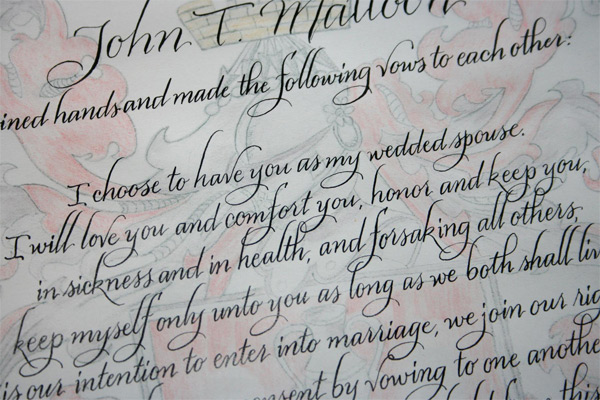 John T. Malloon
ined hands and made the following vows to each other:
I choose to have you as my wedded spouse.
I will love you and comfort you, honor and keep you,
in sickness and in health, and forsaking all others,
keep myself only unto you as long as we both shall liv
is our intention to enter into marriage, we join our rig
onsent by vowing to one anothe
this